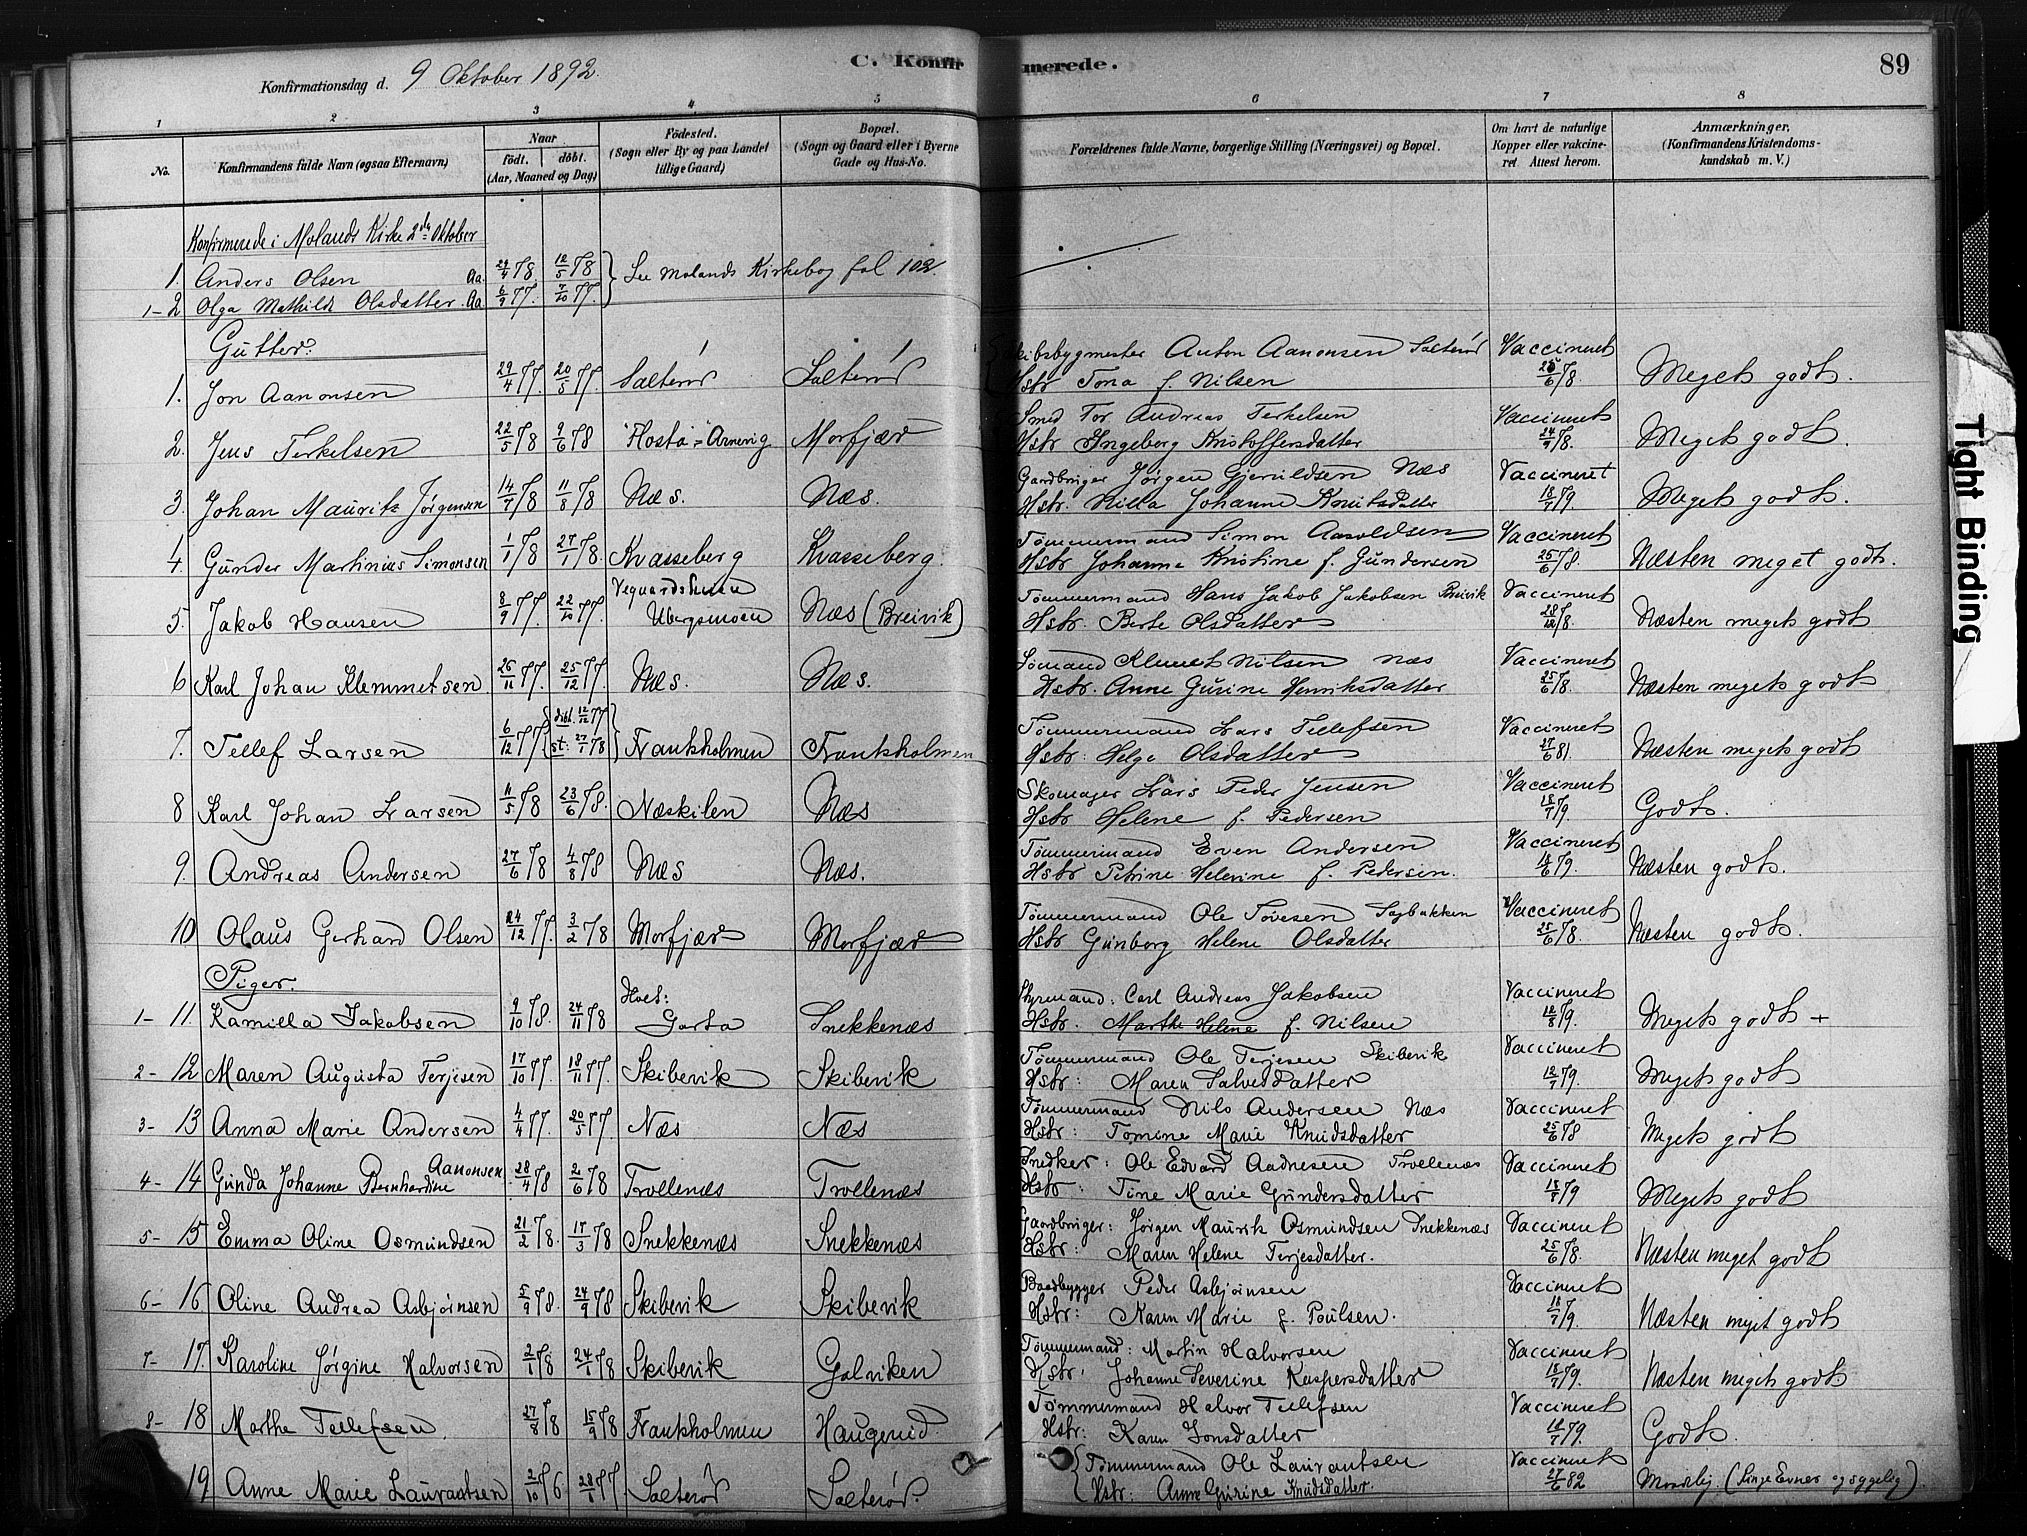 Konfirmationsdag d. 9 Oktober 1892.
C. Konfirmerede.
89
1 2 3 4 5 6 7 8
No.
Konfirmandens fulde Navn (ogsaa Efternavn)
Naar
født. døbt.
(Aar, Maaned og Dag)
Fødested.
(Sogn eller By og paa Landet
tillige Gaard)
Bopæl.
(Sogn og Gaard eller i Byerne
Gade og Hus-No.
Forældrenes fulde Navne, borgerlige Stilling (Næringsvei) og Bopæl.
Om havt de naturlige
Kopper eller vakcine-
ret Attest herom.
Anmærkninger,
(Konfirmandens Kristendoms-
kundskab m. V.)
Konfirmerede i Molands Kirke 2den Oktober
1. Anders Olsen Aa. 29/4 78 12/5 78 See Molands Kirkebog fol 102
1- 2 Olga Mathilde Olsdatter. Aa 6/9 77. 7/10 77.
Gutter:
Skibsbygmester Anton Aanonsen Salterød Vaccineret
1. Jon Aanonsen 29/4 77. 20/5 77. Salterød Salterød Hstr Tona f. Nilsen 25/6 78. Meget godt.
Smed Tor Andreas Terkelsen Vaccineret
2. Jens Terkelsen 22/5 78 9/6 78 "Flosta"-Arnevig Morfjær Hstr Ingeborg Kristoffersdatter 24/9 78. Meget godt.
Gardbruger Jørgen Gjeruldsen Næs Vaccineret
3. Johan Mauritz Jørgensen 14/7 78 11/8 78 Næs. Næs. Hstr. Nilla Johanne Knutsdatter 18/7 79. Meget godt.
Tømmermand Simon Aasoldsen Vaccineret
4. Gunder Martinius Simonsen 1/1 78 27/1 78. Kvasseberg Kvasseberg. Hstr Johanne Kristine f. Gundersen 25/6 78. Næsten meget godt.
Vegaardsheien Tømmermand Hans Jakob Jakobsen Breivik Vaccineret
5. Jakob Hansen 8/9 77. 22/10 77. Ubergsmoen Næs (Breivik) Hstr. Berte Olsdatter 28/12 78. Næsten meget godt
Sømand Klemet Nilsen Næs Vaccineret
6 Karl Johan Klemmetsen 26/11 77. 25/12 77. Næs. Næs. Hstr. Anne Gurine Henriksdatter 25/6 78. Næsten meget godt
døbt. 12/12 77 Tømmermand Lars Tellefsen Vaccineret
7. Tellef Larsen 6/12 77 st: 27/1 78 Frankholmen Frankholmen Hstr: Helge Olsdatter 27/6 81. Næsten meget godt
Skomager Lars Peder Jensen Vaccineret
8 Karl Johan Larsen 11/5 78 23/6 78. Næskilen Næs Hstr Helene f. Pedersen 18/7 79. Godt.
Tømmermand Even Andersen Vaccineret
9. Andreas Andersen 27/6 78 4/8 78 Næs Næs. Hstr Petrine Helevine f. Pedersen. 18/6 79. Næsten godt.
Tømmermand Ole Tovesen Sagbakken Vaccineret
10 Olaus Gerhard Olsen 24/12 77. 3/2 78 Morfjær Morfjær Hstr Gunborg Helene Olsdatter 25/6 78. Næsten godt.
Piger.
Holt: Styrmand: Carl Andreas Jakobsen Vaccineret
1- 11. Kamilla Jakobsen 9/10 78. 24/11 78 Garta Snekkenæs Hstr. Marthe Helene f. Nilsen 12/8 79. Meget godt +
Tømmermand Ole Terjesen Skibevik Vaccineret
2- 12 Maren Augusta Terjesen 17/10 77. 18/11 77. Skibevik Skibevik Hstr: Maren Salvesdatter 12/7 79. Meget godt
Tømmermand Nils Andersen Næs Vaccineret
3- 13 Anna Marie Andersen 4/4 77. 20/5 77. Næs Næs Hstr: Tomine Marie Knudsdatter 25/6 78 Meget godt
Aanonsen Snedker: Ole Edvard Aadnesen Trollenæs Vaccineret
4- 14 Gunda Johanne Bernhardine 28/4 78 2/6 78 Trollenæs Trollenæs Hstr: Tine Marie Gundersdatter 18/7 79 Meget godt
Gaardbruger: Jørgen Maurits Osmundsen Snekkenæs Vaccineret
5- 15 Emma Oline Osmundsen 21/2 78. 17/3 78 Snekkenæs Snekkenæs Hstr: Maren Helene Terjesdatter. 25/6 78. Næsten meget godt
Baadbygger Peder Asbjørnsen Vaccineret
6- 16 Oline Andrea Asbjørnsen 5/9 78. 24/9 78 Skibevik Skibevik Hstr: Karen Marie f. Poulsen. 16/7 79. Næsten meget godt
Tømmermand: Martin Halvorsen Vaccineret
7- 17. Karoline Jørgine Halvorsen 2/1 78 24/1 78 Skibevik Galviken Hstr. Johanne Severine Kaspersdatter 18/7 79. Næsten meget godt.
Tømmermand Halvor Tellefsen Vaccineret
8- 18 Marthe Tellefsen. 27/8 78 15/9 78 Frankholmen Haugerud. Hstr: Karen Jonsdatter 18/7 79. Godt.
Tømmermand Ole Laurantsen Vaccineret
19 Anne Marie Laurantsen 2/10 76 28/1 77. Salterød Salterød. Hstr: Anne Gurine Knudsdatter. 27/6 82 Maadelig. (Ringe Evner og sygelig).
Tight Binding